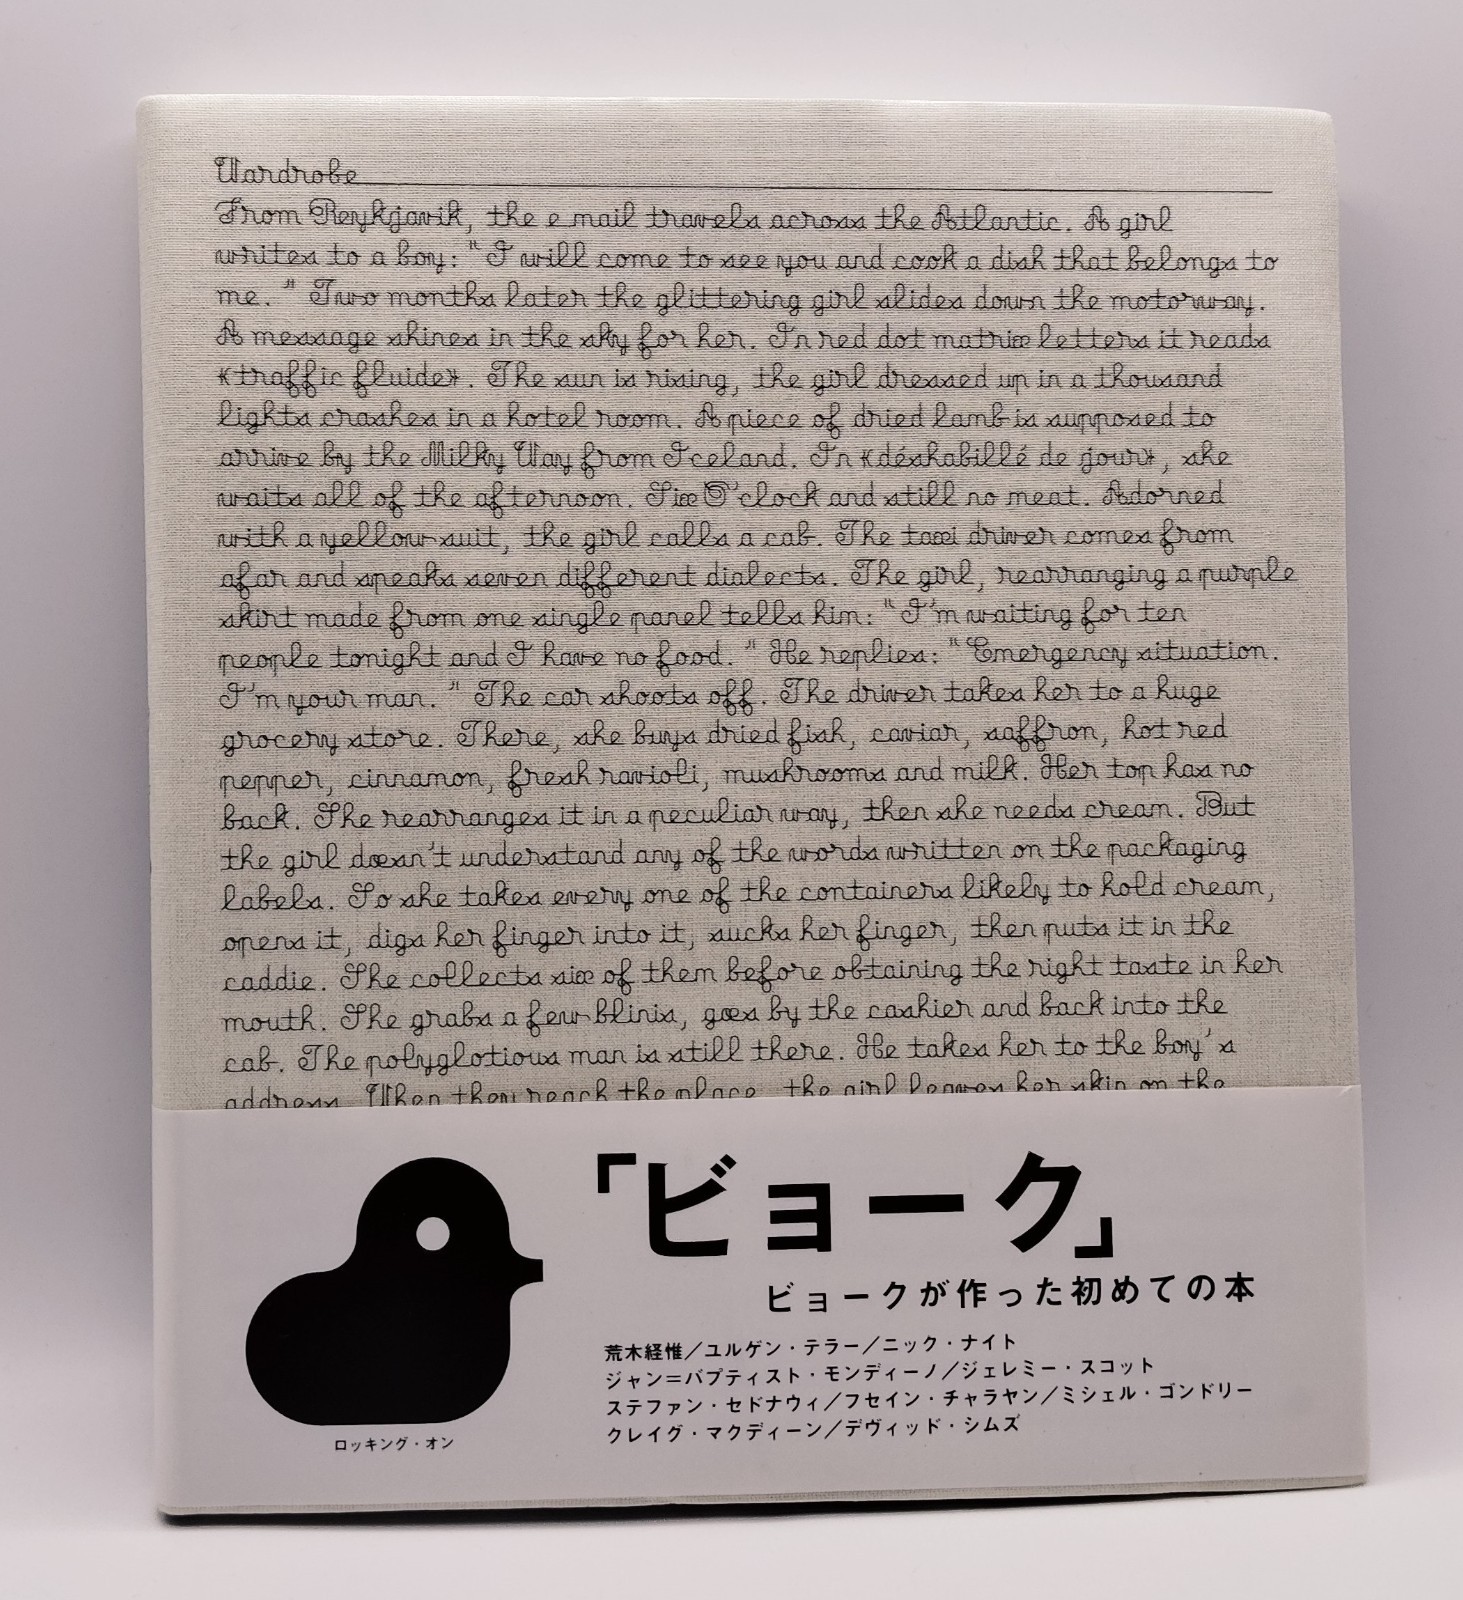 Wardrobe
From Reykjavik, the e mail travels across the Atlantic. A girl
writes to a boy: "I will come to see you and cook a dish that belongs to
me. " Two months later the glittering girl slides down the motorway.
A message shines in the sky for her. In red dot matrix letters it reads
«traffic fluide». The sun is rising, the girl dressed up in a thousand
lights crashes in a hotel room. A piece of dried lamb is supposed to
arrive by the Milky Way from Iceland. In «déshabillé de jour», she
waits all of the afternoon. Six O'clock and still no meat. Adorned
with a yellow suit, the girl calls a cab. The taxi driver comes from
afar and speaks seven different dialects. The girl, rearranging a purple
skirt made from one single panel tells him: "I'm waiting for ten
people tonight and I have no food. " He replies: "Emergency situation.
I'm your man. " The car shoots off. The driver takes her to a huge
grocery store. There, she buys dried fish, caviar, saffron, hot red
pepper, cinnamon, fresh ravioli, mushrooms and milk. Her top has no
back. She rearranges it in a peculiar way, then she needs cream. But
the girl doesn't understand any of the words written on the packaging
labels. So she takes every one of the containers likely to hold cream,
opens it, digs her finger into it, sucks her finger, then puts it in the
caddie. She collects six of them before obtaining the right taste in her
mouth. She grabs a few blinis, goes by the cashier and back into the
cab. The polyglotious man is still there. He takes her to the boy's
address. When they reach the place, the girl leaves her skin on the
「ビョーク」
ビョークが作った初めての本
荒木経惟／ユルゲン・テラー／ニック・ナイト
ジャン＝バプティスト・モンディーノ／ジェレミー・スコット
ステファン・セドナウィ／フセイン・チャラヤン／ミシェル・ゴンドリー
クレイグ・マクディーン／デヴィッド・シムズ
ロッキング・オン